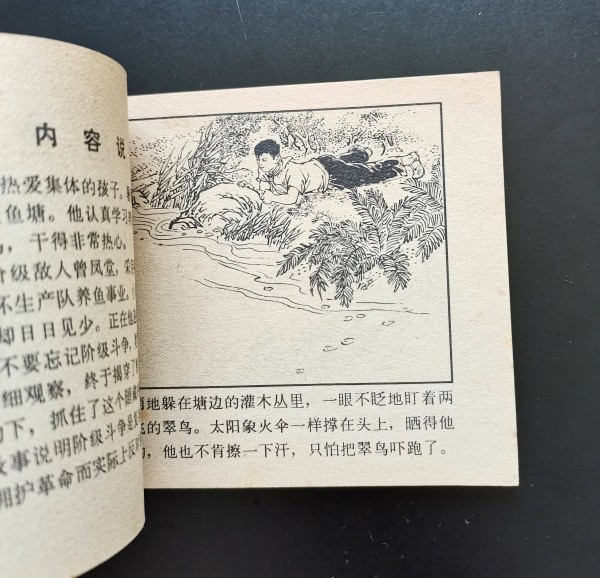 内容说
热爱集体的孩子。
鱼塘。他认真学习
，干得非常热心。
阶级敌人曾凤堂，采
坏生产队养鱼事业，
却日日见少。正在他
不要忘记阶级斗争，
细观察，终于揭穿了
下，抓住了这个
故事说明阶级斗争是
拥护革命而实际上反
悄地躲在塘边的灌木丛里，一眼不眨地盯着两
的翠鸟。太阳象火伞一样撑在头上，晒得他
，他也不肯擦一下汗，只怕把翠鸟吓跑了。